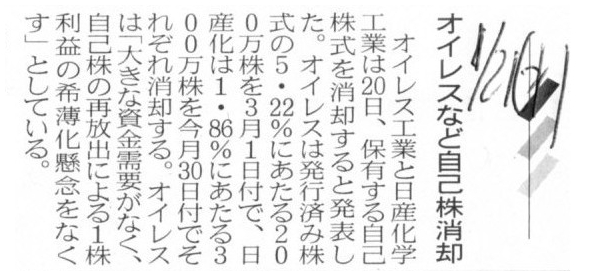 1/21
オイレスなど自己株消却
オイレス工業と日産化学
工業は20日、保有する自己
株式を消却すると発表し
た。オイレスは発行済み株
式の5・22%にあたる20
0万株を3月1日付で、日
産化は1・86%にあたる3
00万株を今月30日付でそ
れぞれ消却する。オイレス
は「大きな資金需要がなく、
自己株の再放出による1株
利益の希薄化懸念をなく
す」としている。